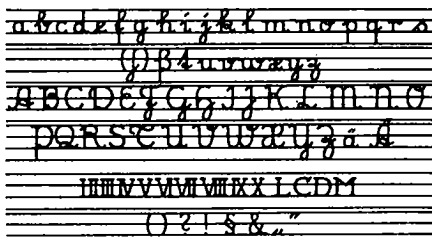 a b c d e f g h i j k l m n o p q r s
(ʃ) β t u v w x y z
A B C D E F G H I J K L M N O
P Q R S T U V W X Y Z ä Å
I II III IV V VI VII VIII IX X L C D M
( ) ? ! § & „ “